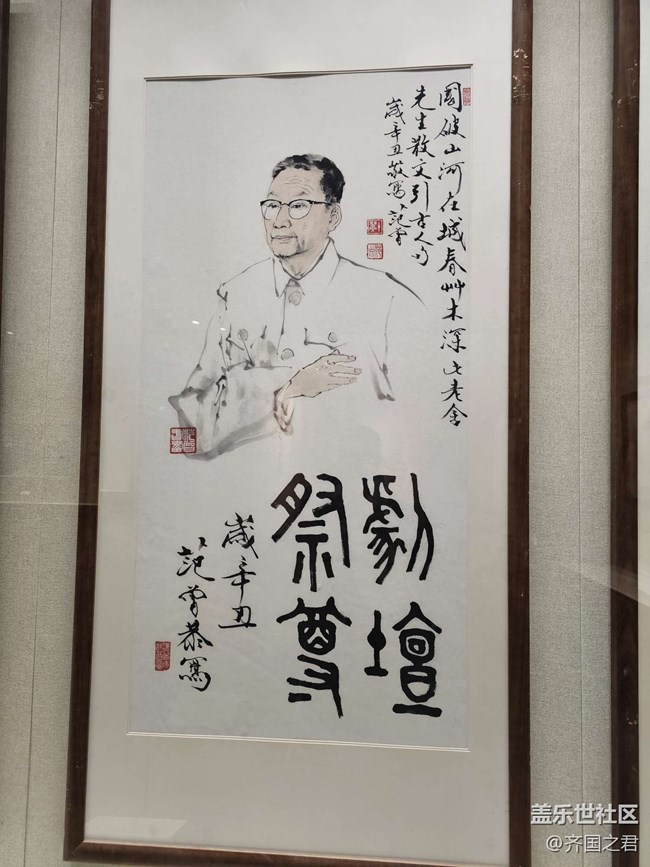 國破山河在城春艸木深此老舍
先生散文引古人句
歲辛丑敬寫范曾
劇壇
祭尊
歲辛丑
范曾恭寫
盖乐世社区
@齐国之君